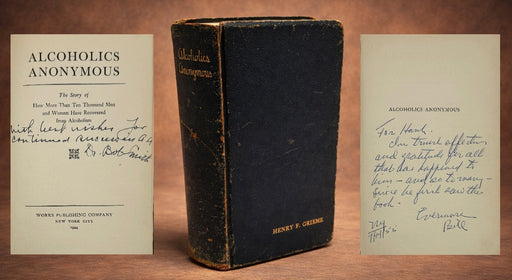 ALCOHOLICS
ANONYMOUS
The Story of
How More Than Ten Thousand Men
and Women Have Recovered
from Alcoholism
with best wishes for
continued success in A.A.
Dr. Bob Smith
WORKS PUBLISHING COMPANY
NEW YORK CITY
1944
Alcoholics
Anonymous
HENRY F. GRIEME
ALCOHOLICS ANONYMOUS
For Hank
In affection
and gratitude for all
that has happened to
him - and so to many -
since he first saw the
book -
Evermore
Bill